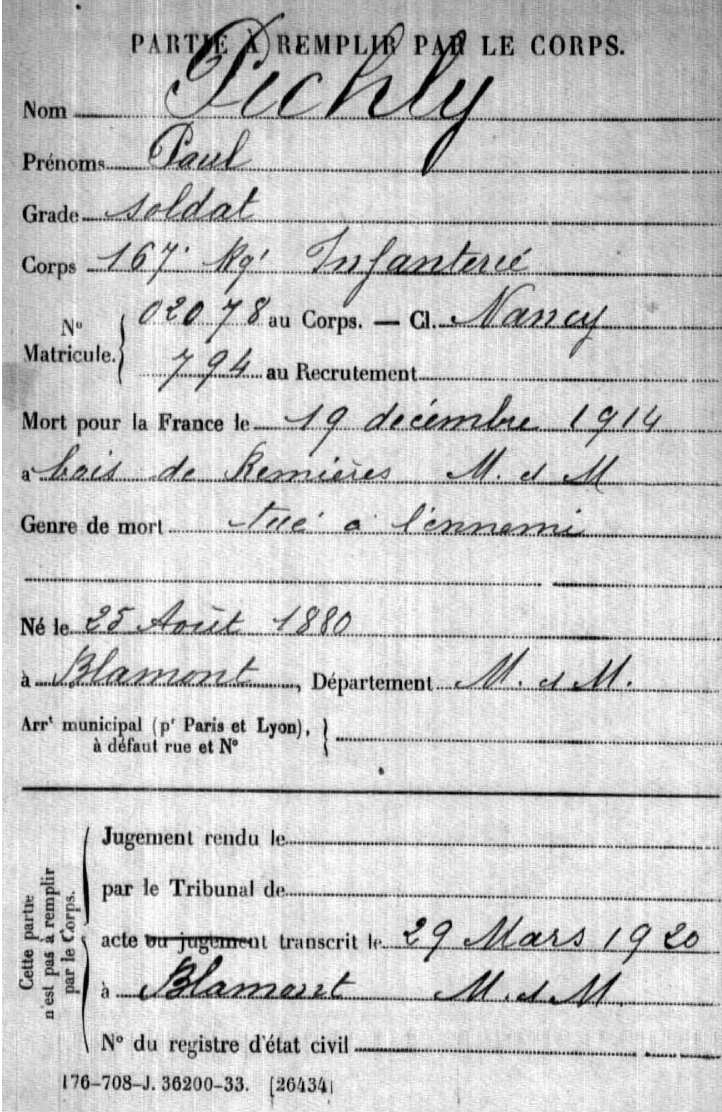 PARTIE À REMPLIR PAR LE CORPS.
Nom Pichly
Prénoms Paul
Grade soldat
Corps 167e Rgt Infanterie
No Matricule. 02078 au Corps. — Cl. Nancy
794 au Recrutement
Mort pour la France le 19 décembre 1914
a bois de Remières M. et M
Genre de mort tué à l'ennemi
Né le 25 Août 1880
à Blamont, Département M. et M.
Arrt municipal (pr Paris et Lyon),
à défaut rue et No
Cette partie
n'est pas à remplir
par le Corps.
Jugement rendu le
par le Tribunal de
acte ou jugement transcrit le 29 Mars 1920
à Blamont M. et M.
No du registre d'état civil
176-708-J. 36200-33. [26434]